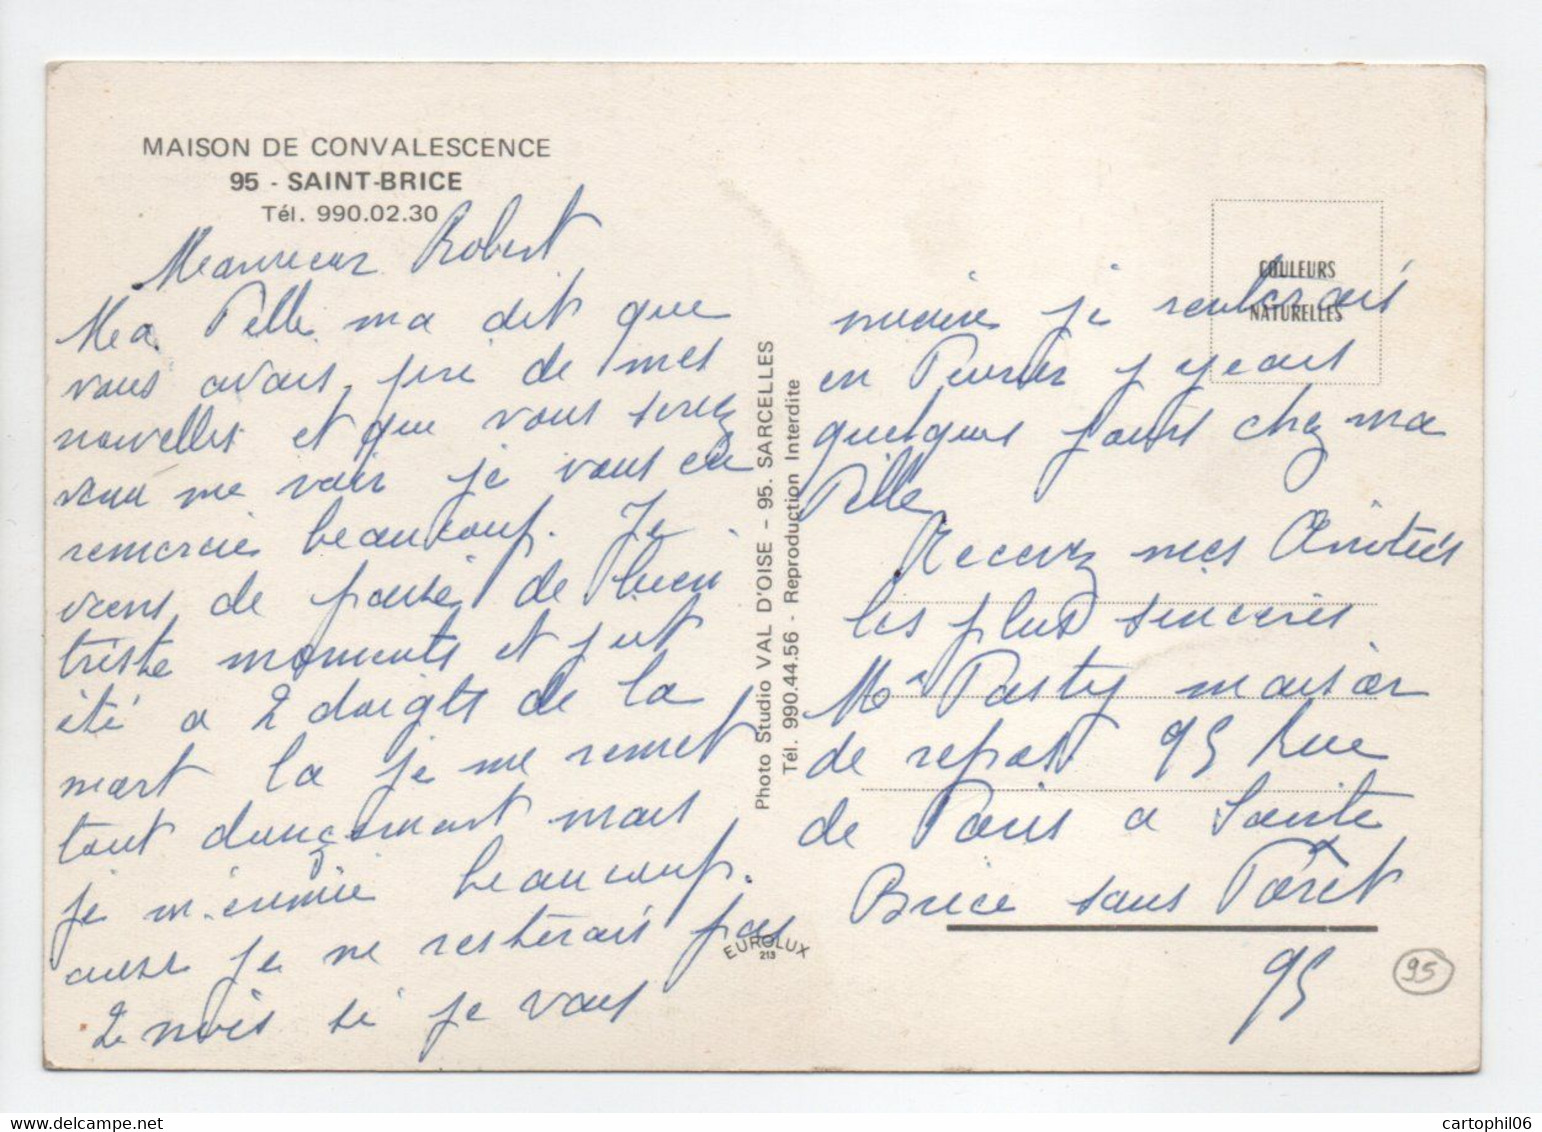 MAISON DE CONVALESCENCE
95 - SAINT-BRICE
Tél. 990.02.30
Robert
Ma Fille ma dit que
vous avais pri de mes
nouvelles et que vous serez
venu me voir je vous en
remercie beaucoup. Je
viens de passé de bien
triste moments et jut
été a 2 doigts de la
mort la je me remet
tout doucement mais
je m'ennuie beaucoup.
aussi je ne resterais pas
2 mois si je vous
je rentrerais
en Fevrier j yeais
quelques jours chez ma
Fille
Recevez mes Amitiés
les plus sinceres
Me Pasty maison
de repos 95 Rue
de Paris a Sainte
Brice sous Forêt
95
COULEURS
NATURELLES
Photo Studio VAL D'OISE - 95. SARCELLES
Tél. 990.44.56 - Reproduction Interdite
EUROLUX
213
95
cartophil06